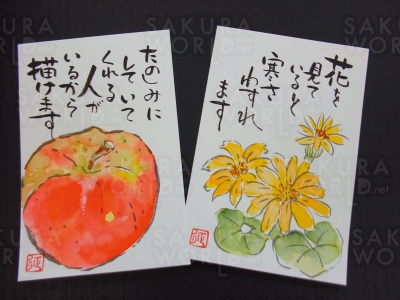 たのしみに
していて
くれる
人が
いるから
描けます
花を
見て
いると
寒さ
わすれ
ます
SAKURA
WORLD.net